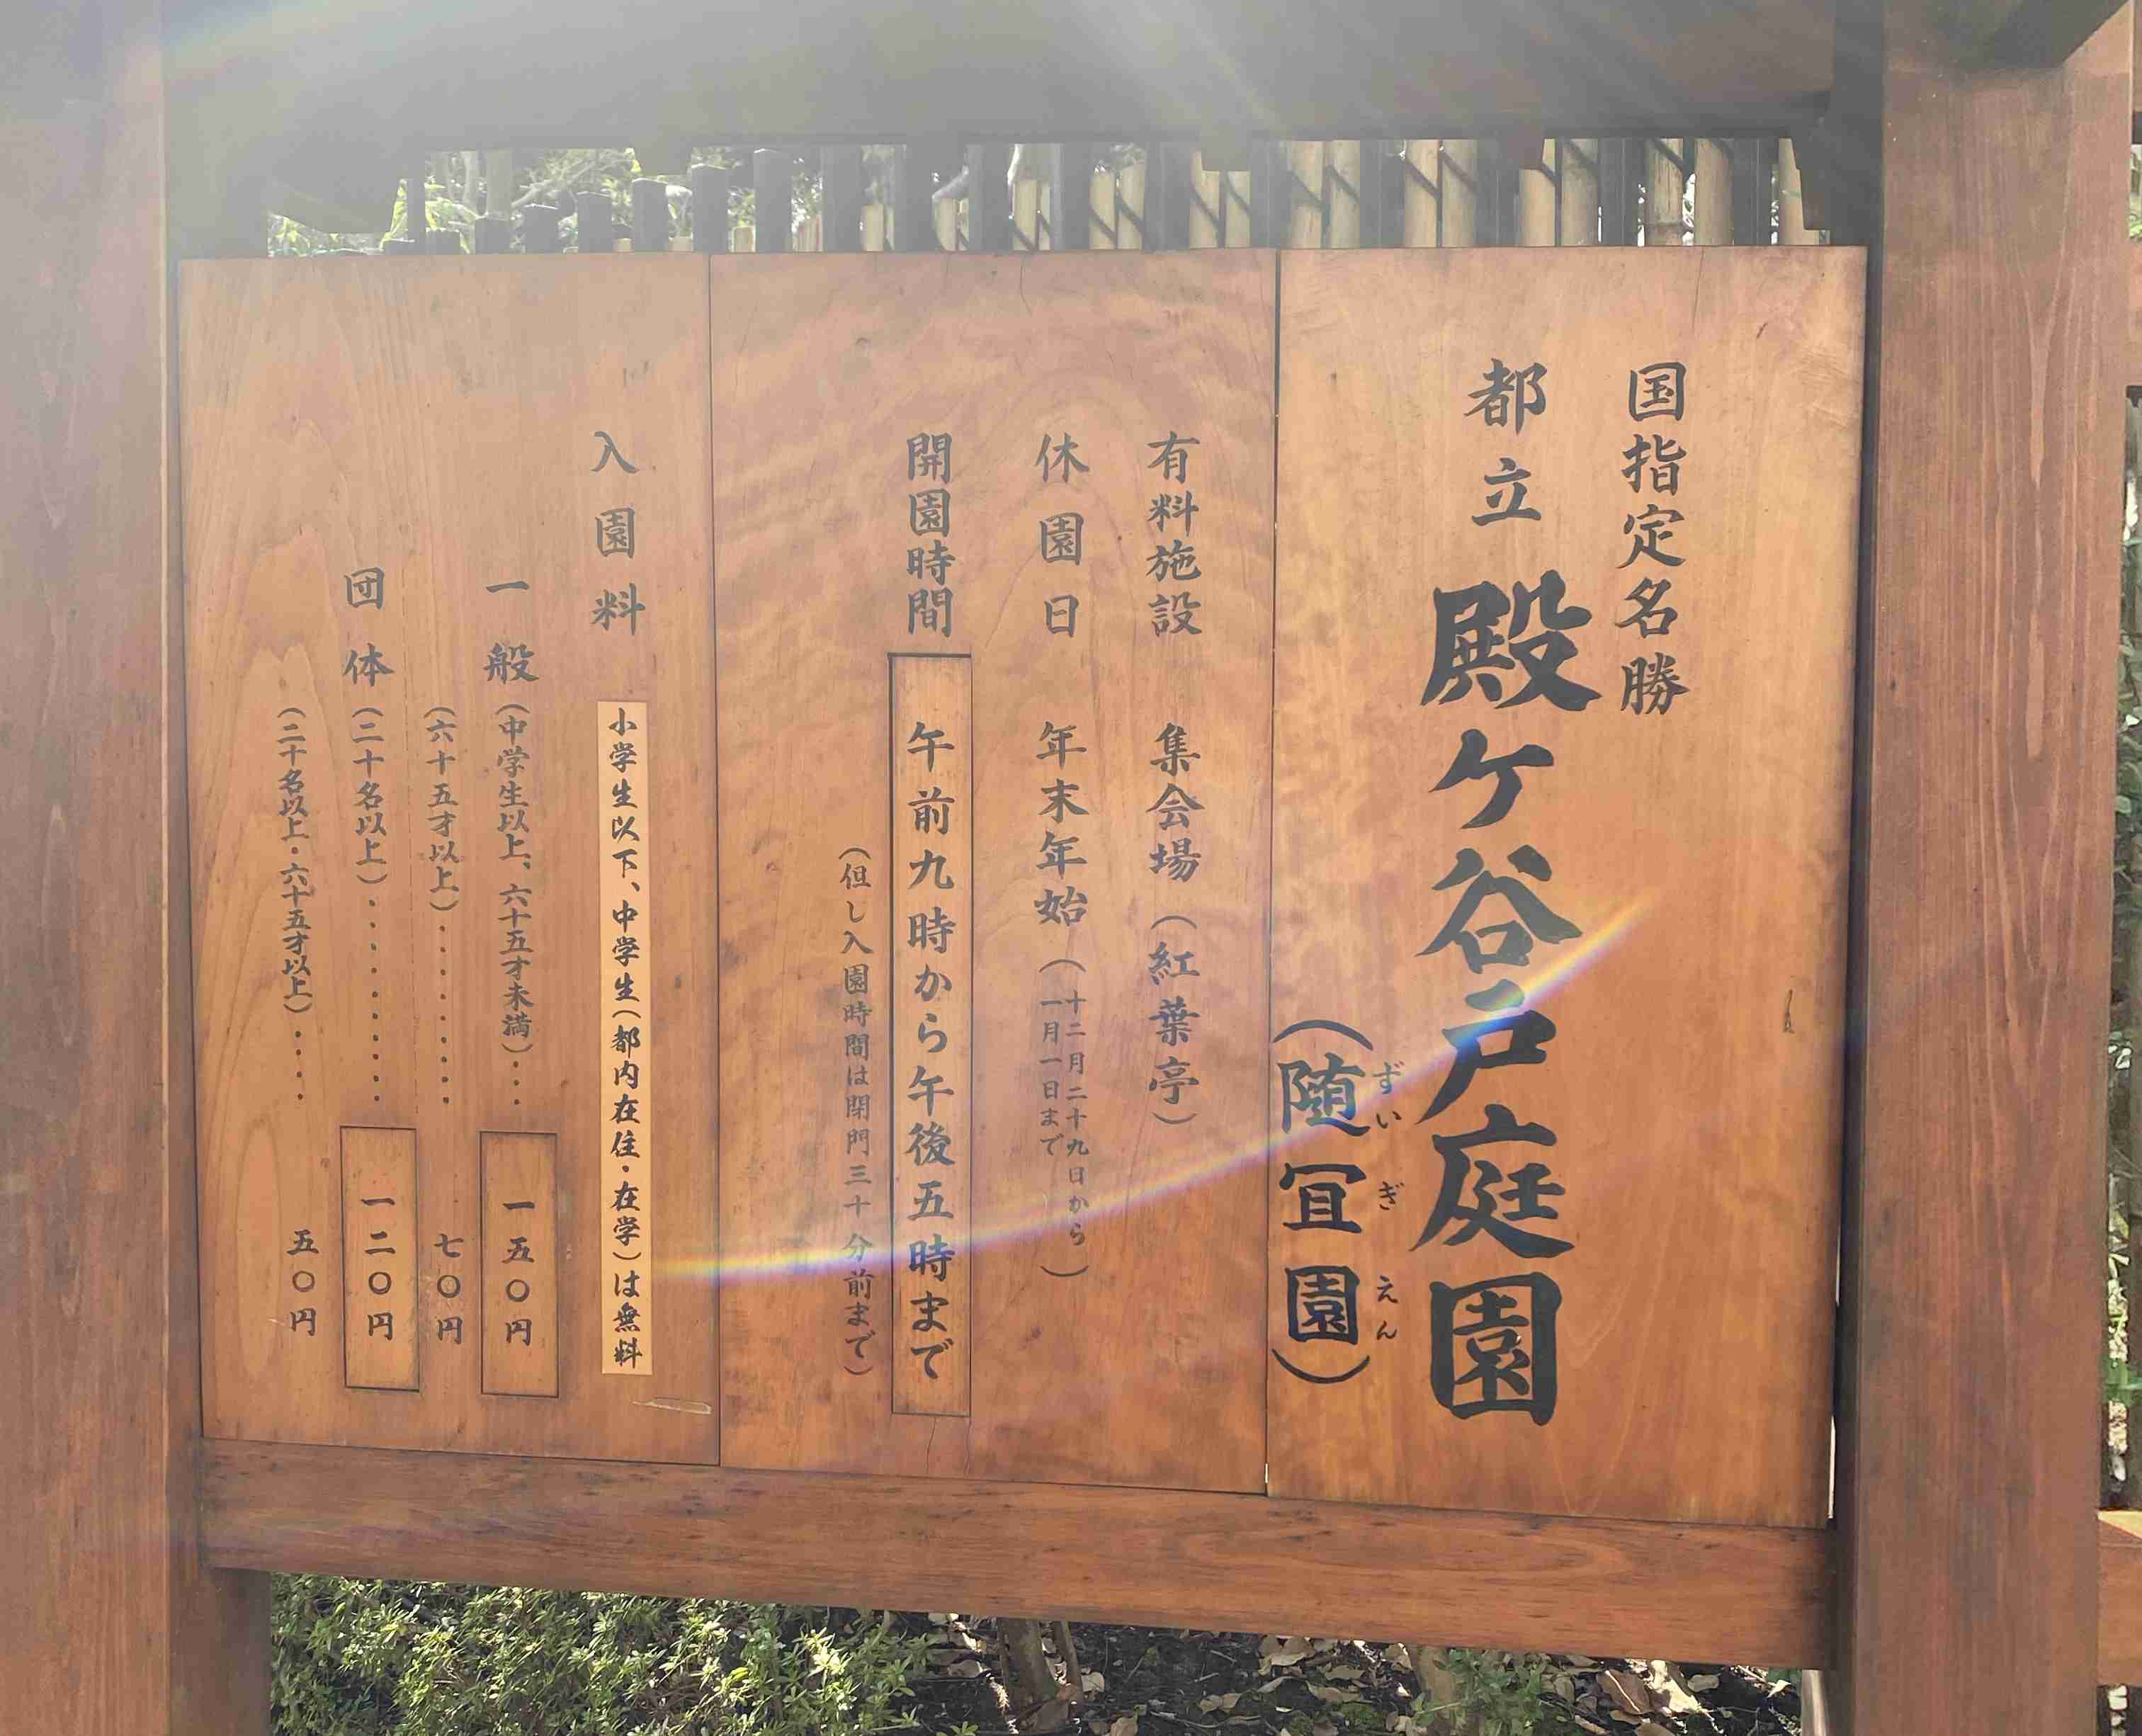 国指定名勝
都立 殿ケ谷戸庭園
(随冝園)
ずいぎえん
有料施設 集会場(紅葉亭)
休園日 年末年始(十二月二十九日から
一月一日まで)
開園時間 午前九時から午後五時まで
(但し入園時間は閉門三十分前まで)
入園料 小学生以下、中学生(都内在住・在学)は無料
一般(中学生以上、六十五才未満)・・・ 一五〇円
(六十五才以上)・・・・・・・・・・ 七〇円
団体(二十名以上)・・・・・・・・・・ 一二〇円
(二十名以上・六十五才以上)・・・・・ 五〇円